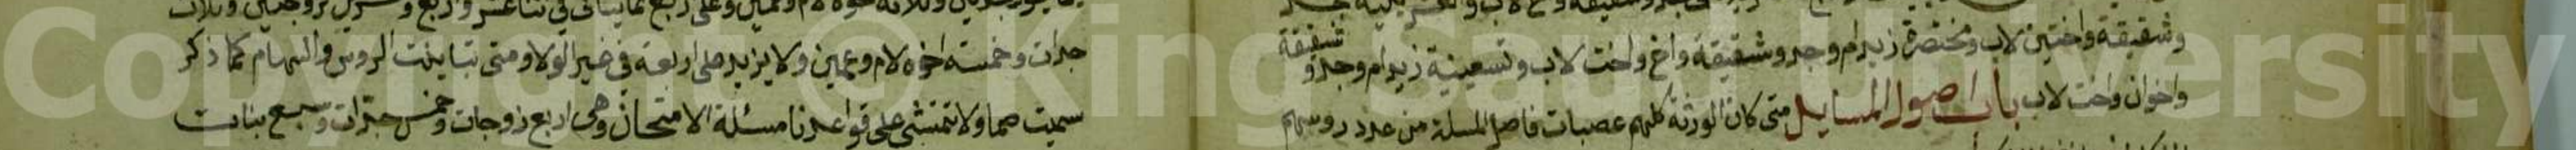 وشقيقة واختين لاب ومختصرة زيد ام وجد وشقيقة واخ واخت لاب وتسعينية زيد ام وجد وشقيقة
واخوان واخت لاب باب اصول المسايل متى كان الورثة كلهم عصبات فاصل المسلة من عدد روسهم
جدات وخمسة اخوه لام وعمين ولا يزيد على اربعة في غير الولا ومتى تباينت الروس والسهام كما ذكر
سميت صما ولا تتمشى على قواعدنا مسئلة الامتحان وهي اربع زوجات وخمس جدات وسبع بنات
Copyright © King Saud University